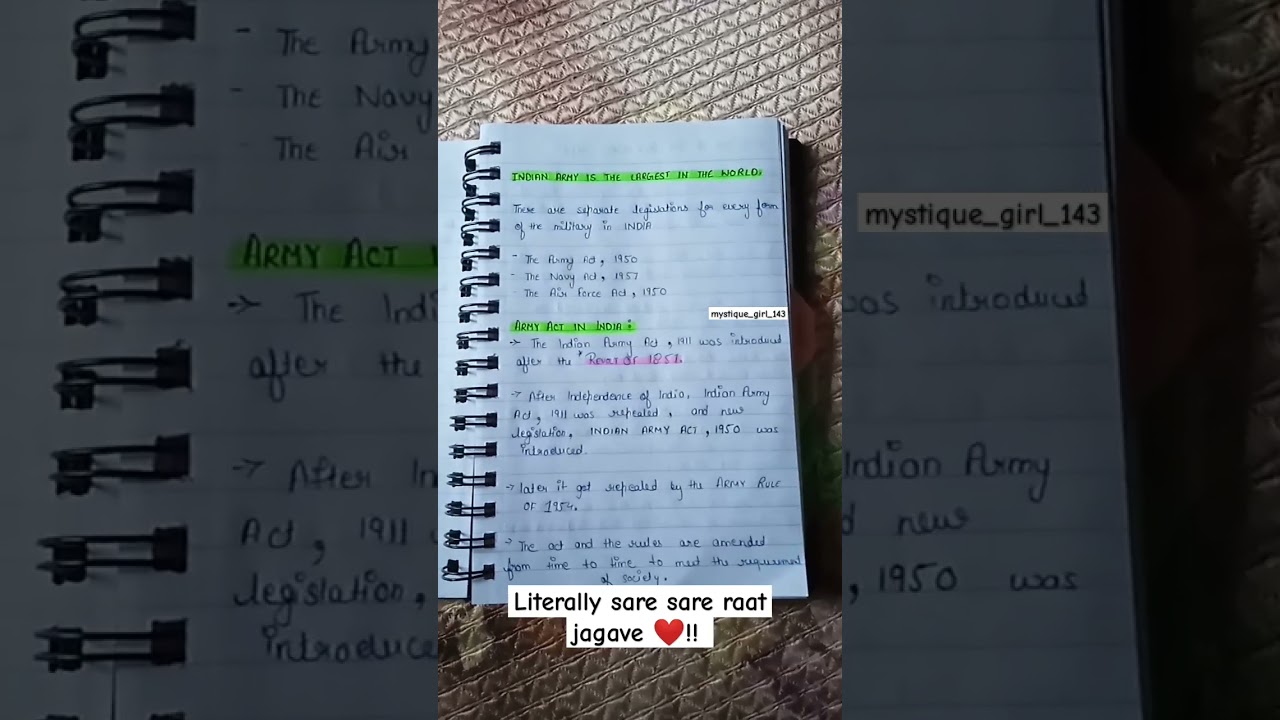 INDIAN ARMY IS THE LARGEST IN THE WORLD.
There are separate legislations for every form
of the military in INDIA
- The Army Act, 1950
- The Navy Act, 1957
- The Air Force Act, 1950
mystique_girl_143
ARMY ACT IN INDIA :
-> The Indian Army Act, 1911 was introduced
after the * Revolt OF 1857.
-> After Independence of India, Indian Army
Act, 1911 was repealed, and new
legislation, INDIAN ARMY ACT, 1950 was
introduced.
-> later it got repealed by the ARMY RULE
OF 1954.
-> The act and the rules are amended
from time to time to meet the requirement
of society.
Literally sare sare raat
jagave ❤️!!
- The Army
- The Navy
- The Air
ARMY ACT
-> The Indi
after the
-> After In
Act, 1911
legislation,
introduce
mystique_girl_143
was introduced
Indian Army
new
, 1950 was